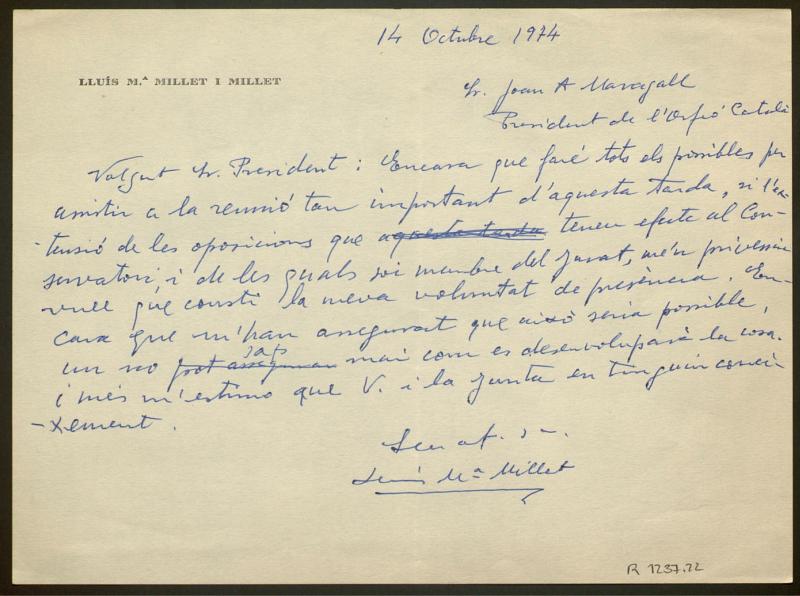 14 Octubre 1974
LLUÍS M.ª MILLET I MILLET
Sr. Joan A Maragall
President de l'Orfeó Català
Volgut Sr. President: Encara que faré tots els possibles per
assistir a la reunió tan important d'aquesta tarda, si l'ex-
tensió de les oposicions que aquesta tarda tenen efecte al Con-
servatori, i de les quals soi membre del Jurat, me'n privessin
vull que consti la meva voluntat de presència. En-
cara que m'han assegurat que això seria possible,
un no pot sap mai com es desenvoluparà la cosa.
i més m'estimo que V. i la Junta en tinguin conei-
xement.
Seu af. s.
Lluís Mª Millet
R 1237.22